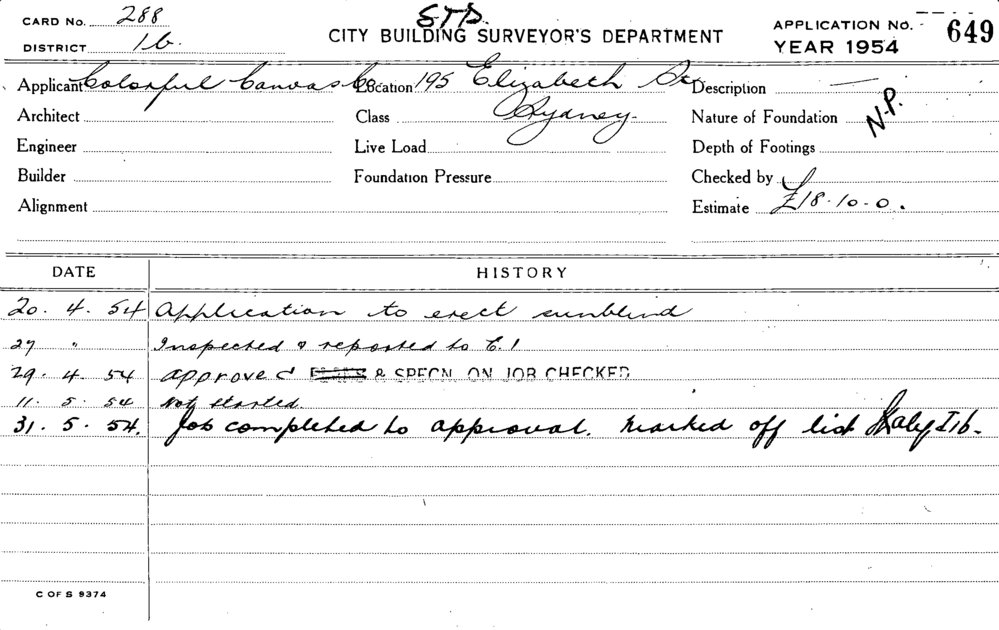 CARD No. 288
STD.
CITY BUILDING SURVEYOR'S DEPARTMENT
APPLICATION No. 649
DISTRICT 1b.
YEAR 1954
Applicant Colorful Canvas Co Location 195 Elizabeth St Description
Architect Class Sydney. Nature of Foundation N.P.
Engineer Live Load Depth of Footings
Builder Foundation Pressure Checked by
Alignment Estimate £18-10-0.
DATE HISTORY
20. 4. 54 Application to erect sunblind
27 " Inspected & reported to E.1
29. 4. 54 approved & SPECN. ON JOB CHECKED
11. 5. 54 Not started.
31. 5. 54. Job completed to approval. Marked off list I1b.
C OF S 9374